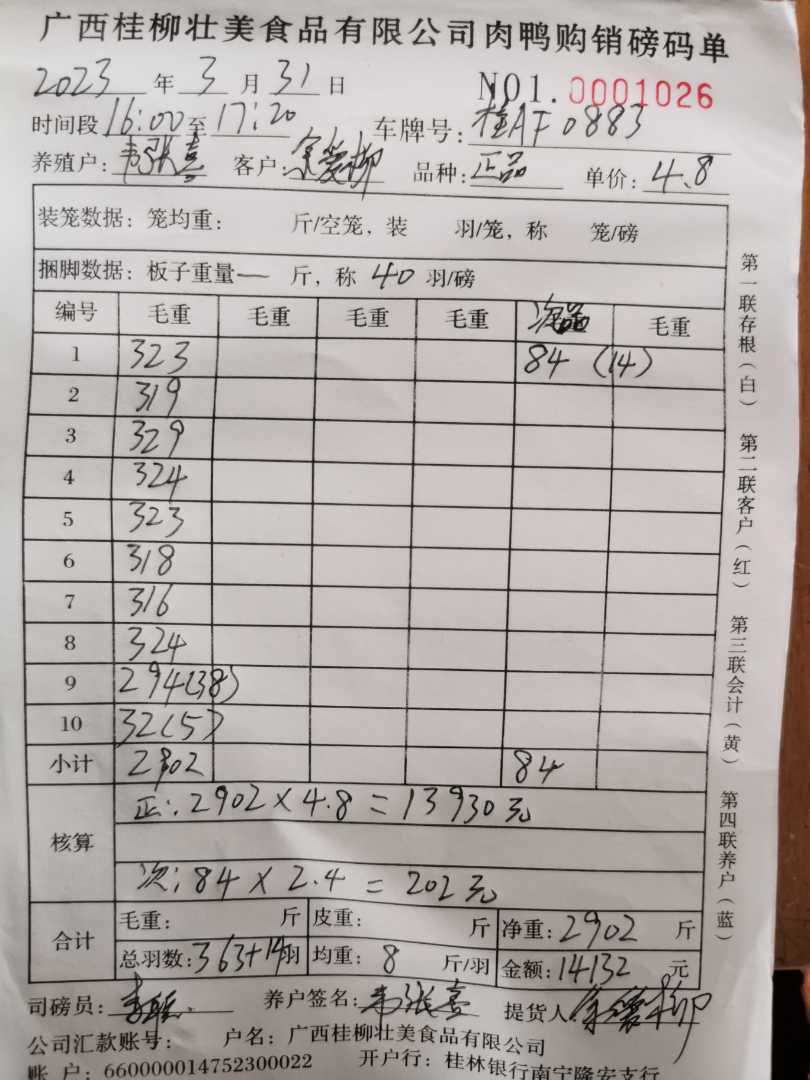 广西桂柳壮美食品有限公司肉鸭购销磅码单
2023 年 3 月 31 日 NO1.0001026
时间段 16:00 至 17:20 车牌号: 桂AF0883
养殖户: 韦张喜 客户: 品种: 正品 单价: 4.8
装笼数据: 笼均重: 斤/空笼, 装 羽/笼, 称 笼/磅
捆脚数据: 板子重量— 斤, 称 40 羽/磅
编号 毛重 毛重 毛重 毛重 次品 毛重
1 323 84 (14)
2 319
3 329
4 324
5 323
6 318
7 316
8 324
9 294(38)
10 32(5)
小计 2902 84
核算 正: 2902×4.8=13930元
次: 84×2.4=202元
合计 毛重: 斤 皮重: 斤 净重: 2902 斤
总羽数: 363+14羽 均重: 8 斤/羽 金额: 14132 元
司磅员: 养户签名: 韦张喜 提货人
公司汇款账号: 户名: 广西桂柳壮美食品有限公司
账 户: 660000014752300022 开户行: 桂林银行南宁隆安支行
第一联存根(白) 第二联客户(红) 第三联会计(黄) 第四联养户(蓝)